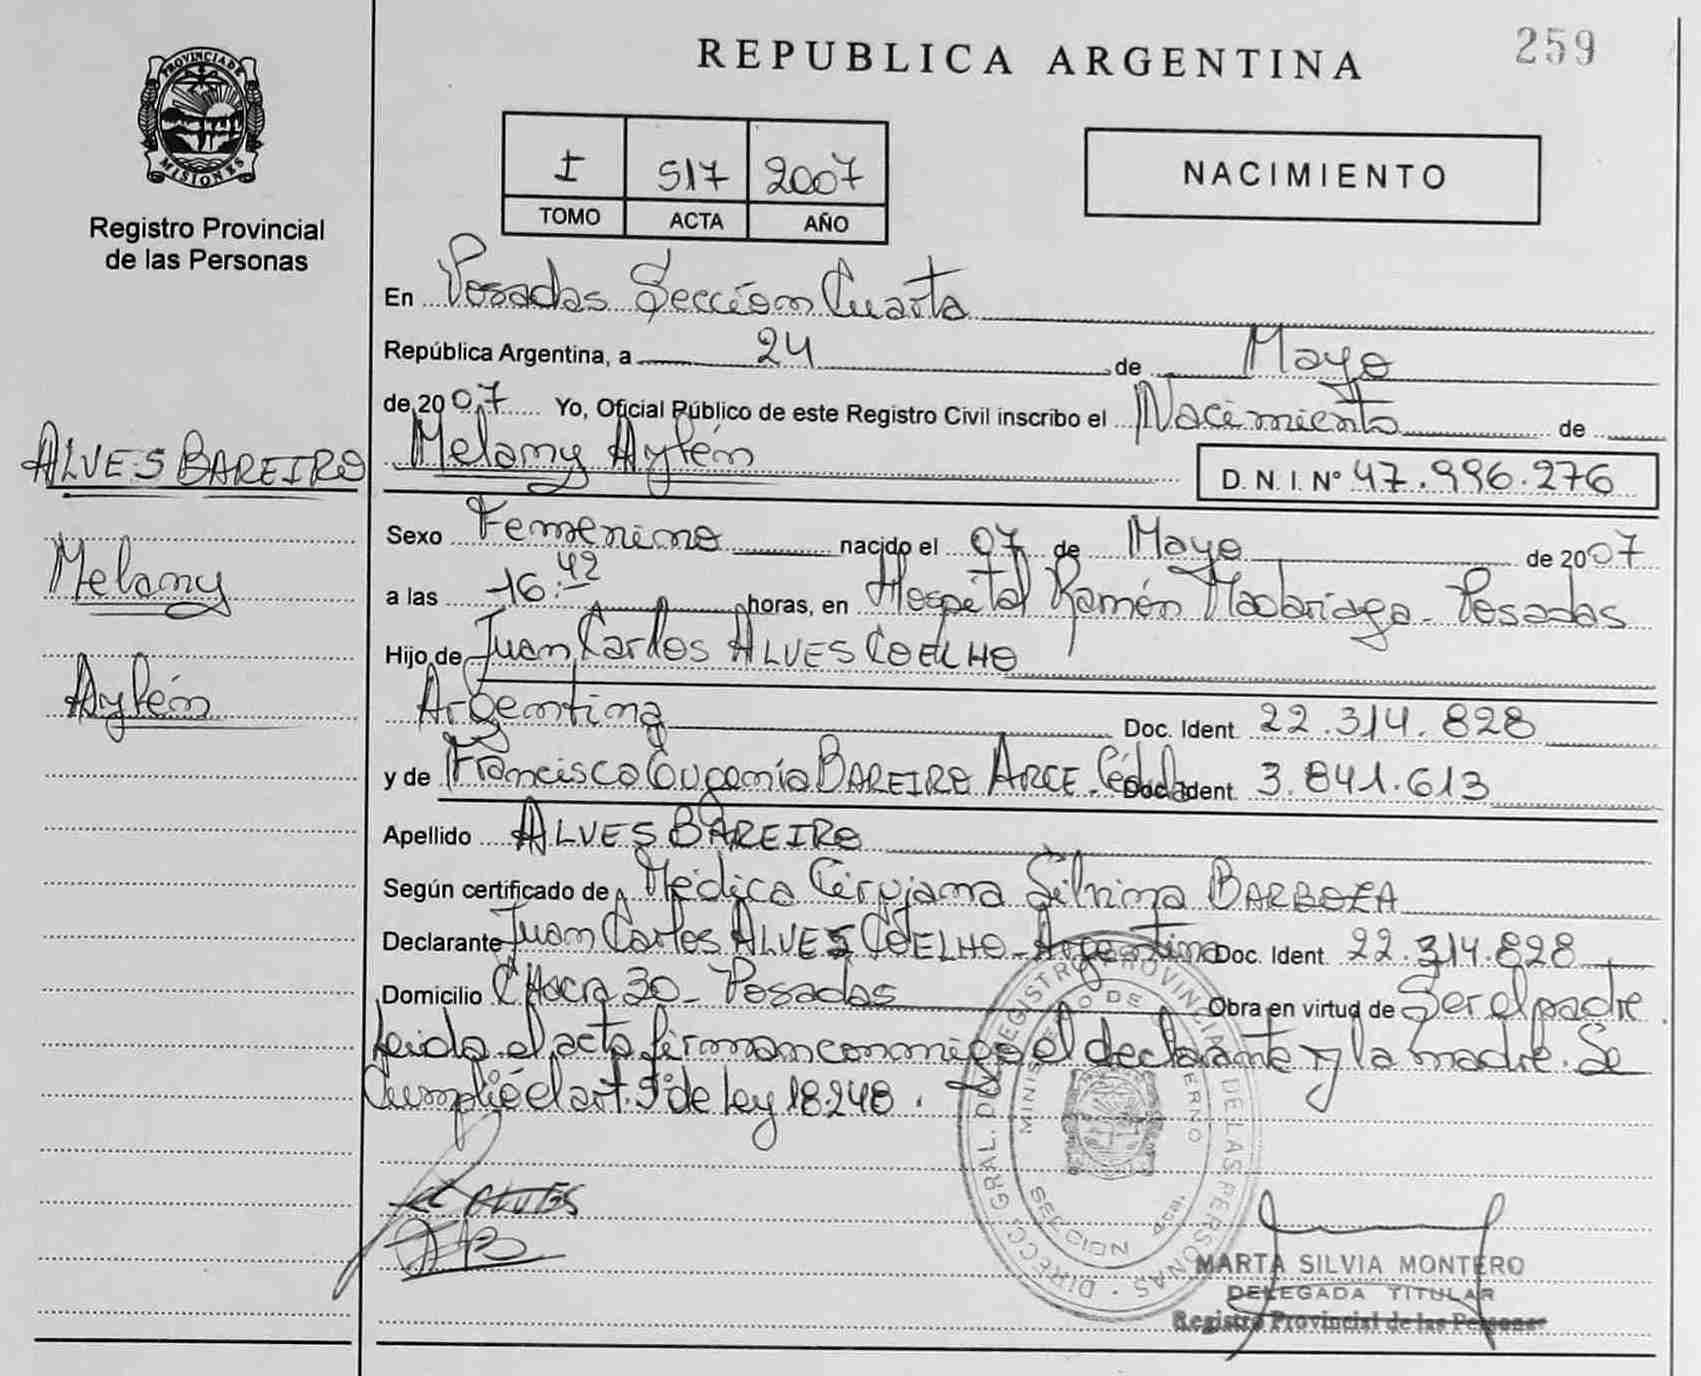 259
REPUBLICA ARGENTINA
PROVINCIA DE
MISIONES
Registro Provincial
de las Personas
I 517 2007
TOMO ACTA AÑO
NACIMIENTO
En Posadas Sección Cuarta
República Argentina, a 24 de Mayo
de 2007 Yo, Oficial Público de este Registro Civil inscribo el Nacimiento de
Melany Aylén D. N. I. Nº 47.996.276
ALVES BAREIRO
Melany
Aylén
Sexo Femenino nacido el 07 de Mayo de 2007
a las 16:42 horas, en Hospital Ramón Madariaga - Posadas
Hijo de Juan Carlos ALVES COELHO
Argentina Doc. Ident. 22.314.828
y de Francisca Eugenia BAREIRO ARCE. Cédula Doc. Ident. 3.841.613
Apellido ALVES BAREIRO
Según certificado de Médica Cirujana Silvina BARBOZA
Declarante Juan Carlos ALVES COELHO - Argentina Doc. Ident. 22.314.828
Domicilio CHACRA 30 - Posadas Obra en virtud de Ser el padre.
Leida el acta firman conmigo el declarante y la madre. Se
Cumplió el art. 5º de ley 18.248.
DIRECC. GRAL. DEL REGISTRO PROVINCIAL DE LAS PERSONAS
SECCION 4ta
ALVES
MARTA SILVIA MONTERO
DELEGADA TITULAR
Registro Provincial de las Personas